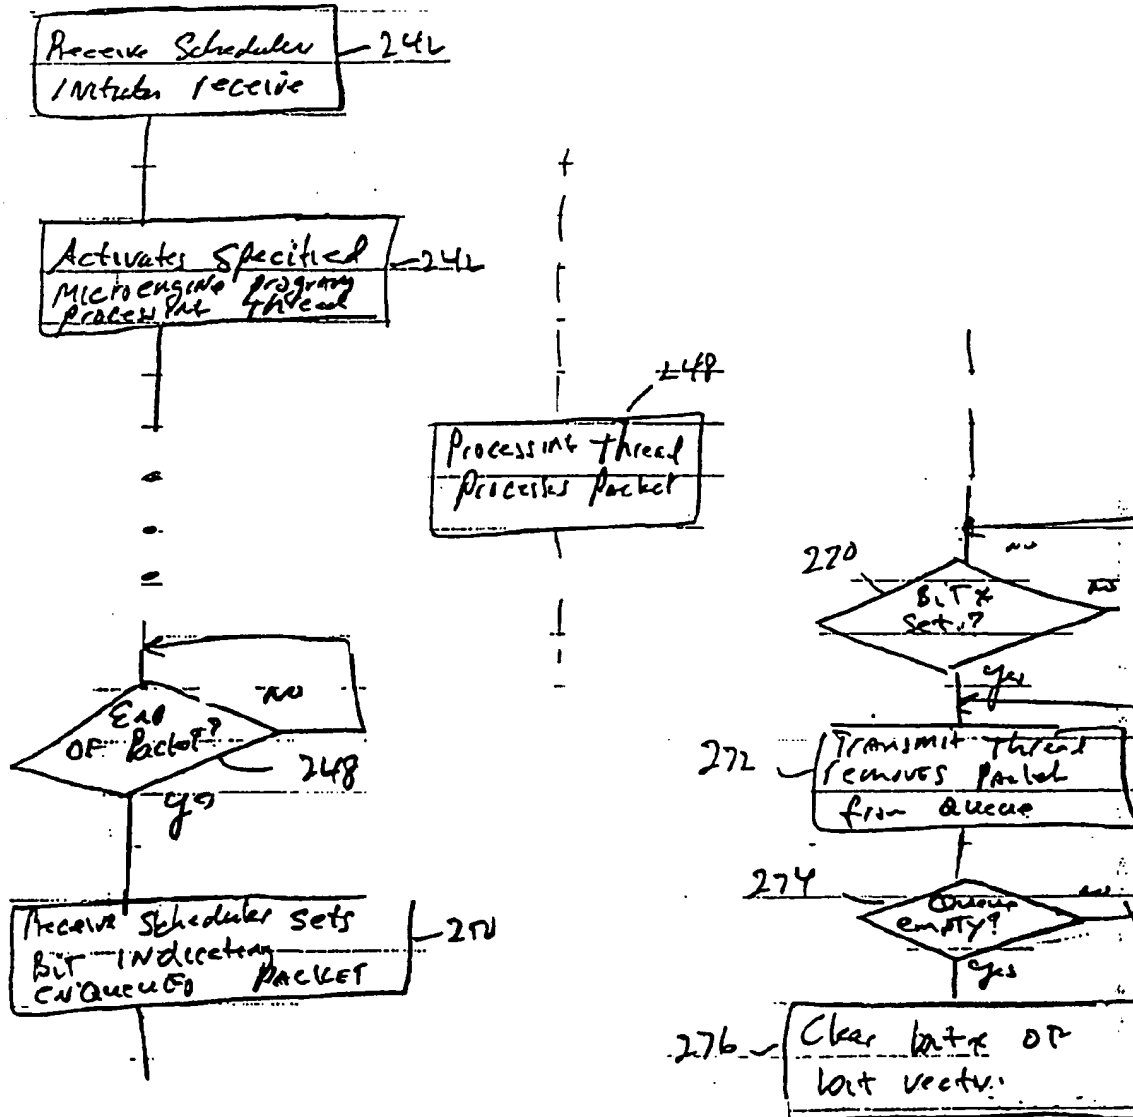 Receive Scheduler
Initiates receive
242
Activates Specified
Microengine program
processing thread
242
248
Processing thread
Processes Packet
End
OF Packet?
NO
248
yes
Receive Scheduler sets
Bit indicating
ENQUEUED PACKET
250
NO
270
BiT x
Set?
NO
yes
272
Transmit Thread
removes Packet
from Queue
274
Queue
empty?
NO
Yes
276
Clear bit x of
bit vector